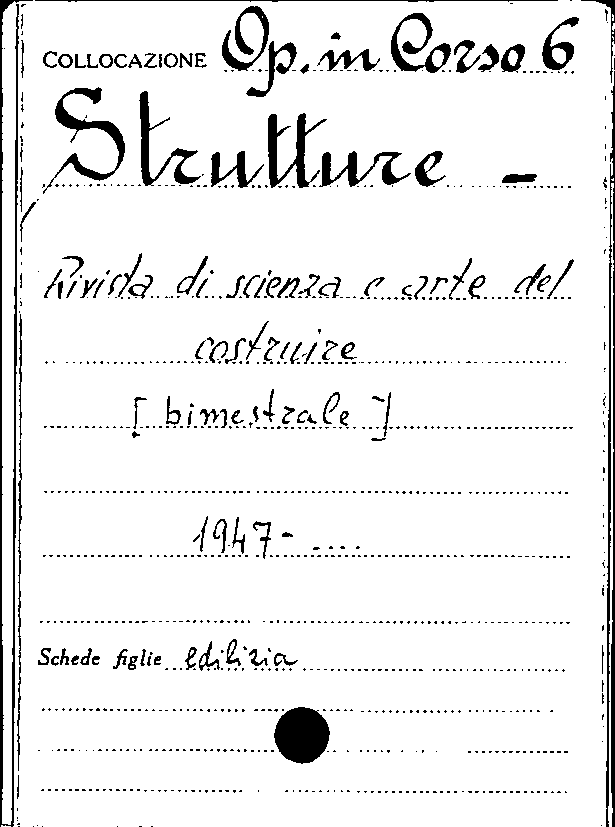 COLLOCAZIONE Op. in Corso 6
Strutture -
Rivista di scienza e arte del
costruire
[ bimestrale ]
1947- ....
Schede figlie edilizia